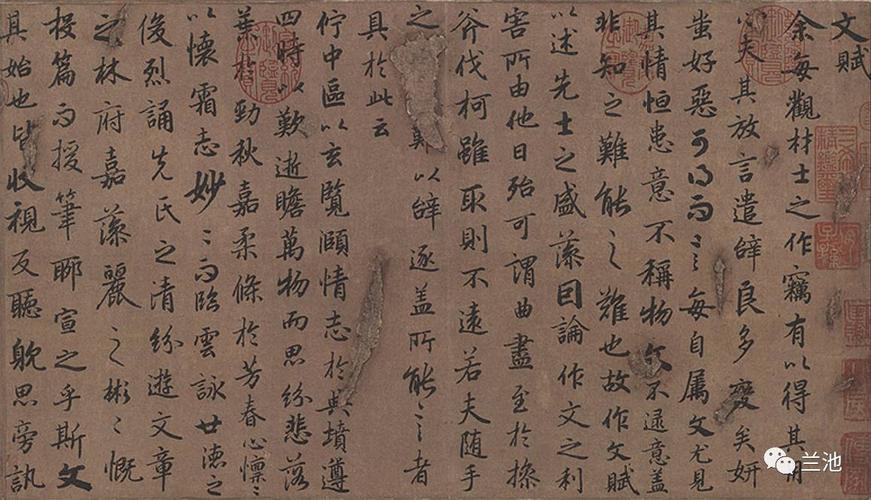 文賦
余每觀材士之作竊有以得其用
心夫其放言遣辭良多變矣妍
蚩好惡可得而言每自属文尤見
其情恒患意不稱物文不逮意盖
非知之難能之難也故作文賦
以述先士之盛藻因論作文之利
害所由他日殆可謂曲盡至於操
斧伐柯雖取則不遠若夫随手
之難以辝逐盖所能言者
具於此云
佇中區以玄覽頤情志於典墳遵
四時以歎逝瞻萬物而思紛悲落
葉於勁秋嘉柔條於芳春心懍〻
以懷霜志妙〻而臨雲詠世德之
俊烈誦先民之清紛遊文章
之林府嘉藻麗之彬〻慨
投篇而援筆聊宣之乎斯文
其始也皆收視反聽耽思旁訊
兰池